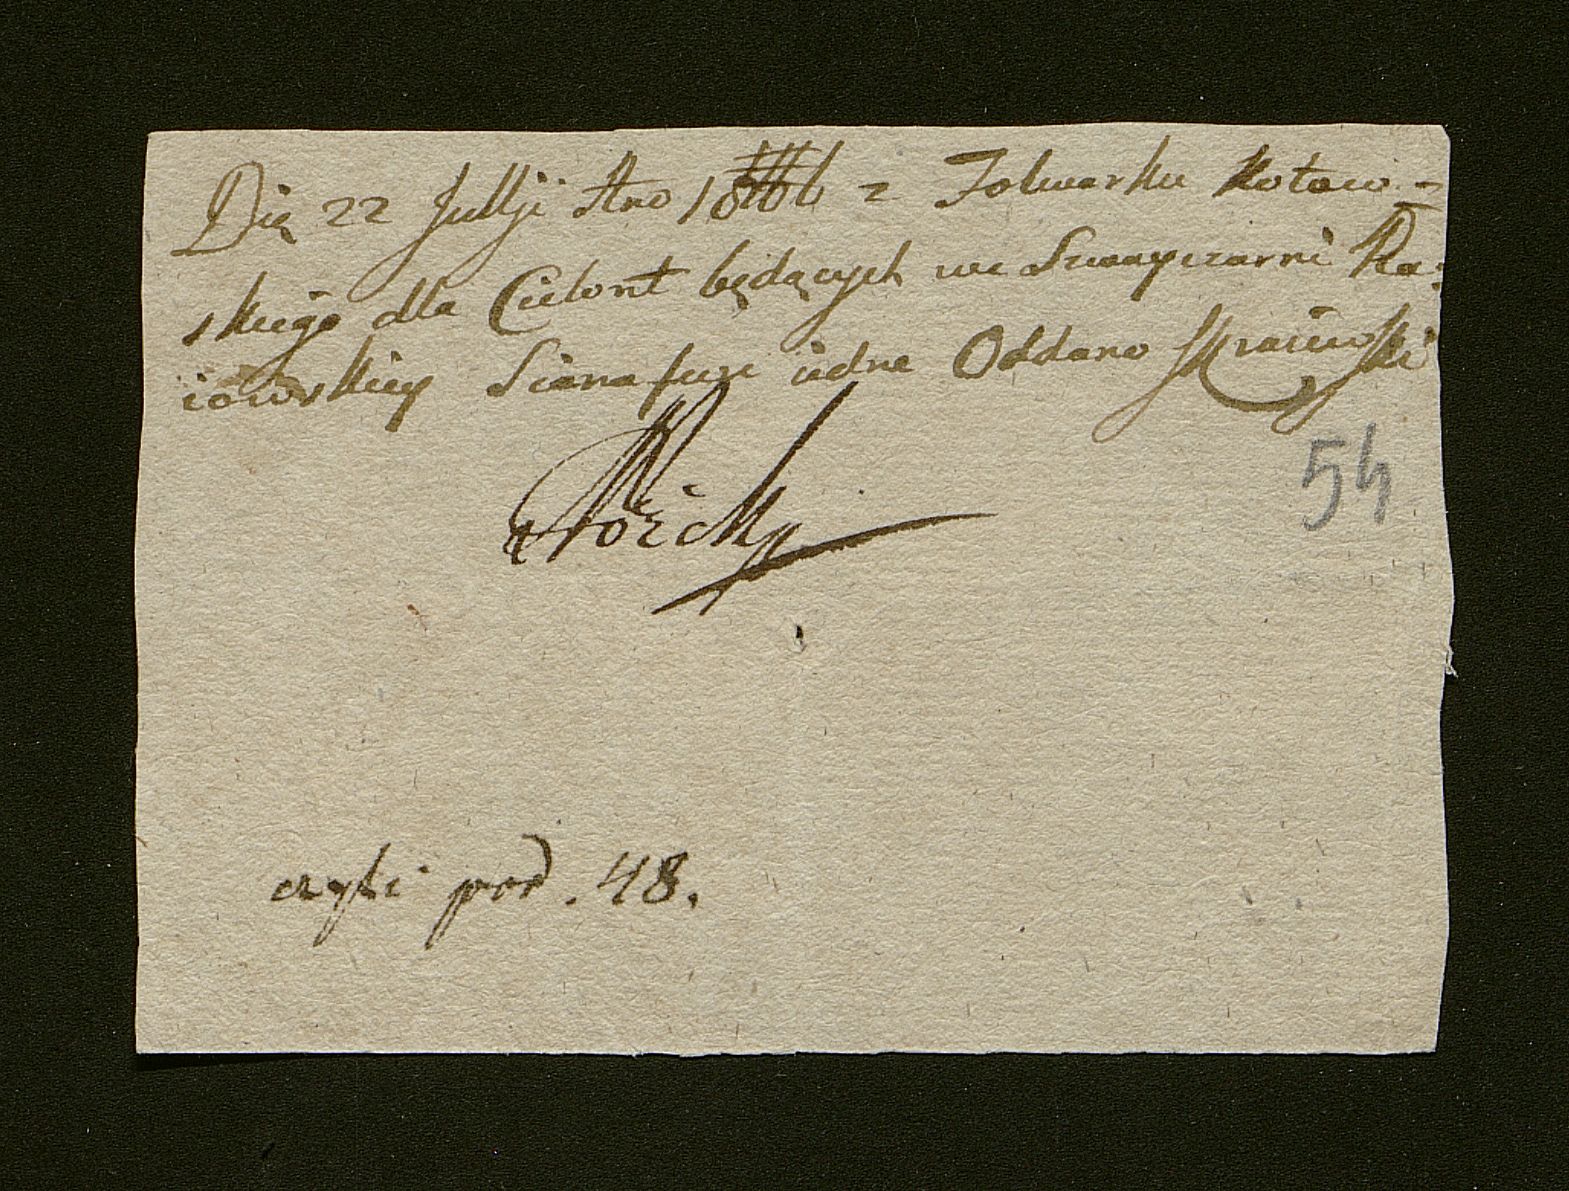 Dię 22 Jullji Ano 1806 z Folwarku Kotow=
skiego dla Cielont będących we Szwayczarni Ra:
iowskiey Siana fure iedne Oddano Skraiewski
czyli pod. 48.
54